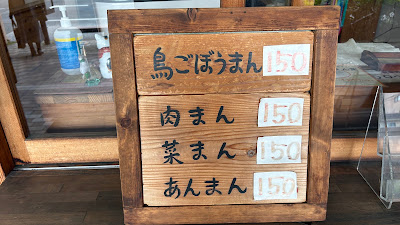 鳥ごぼうまん 150
肉まん 150
菜まん 150
あんまん 150